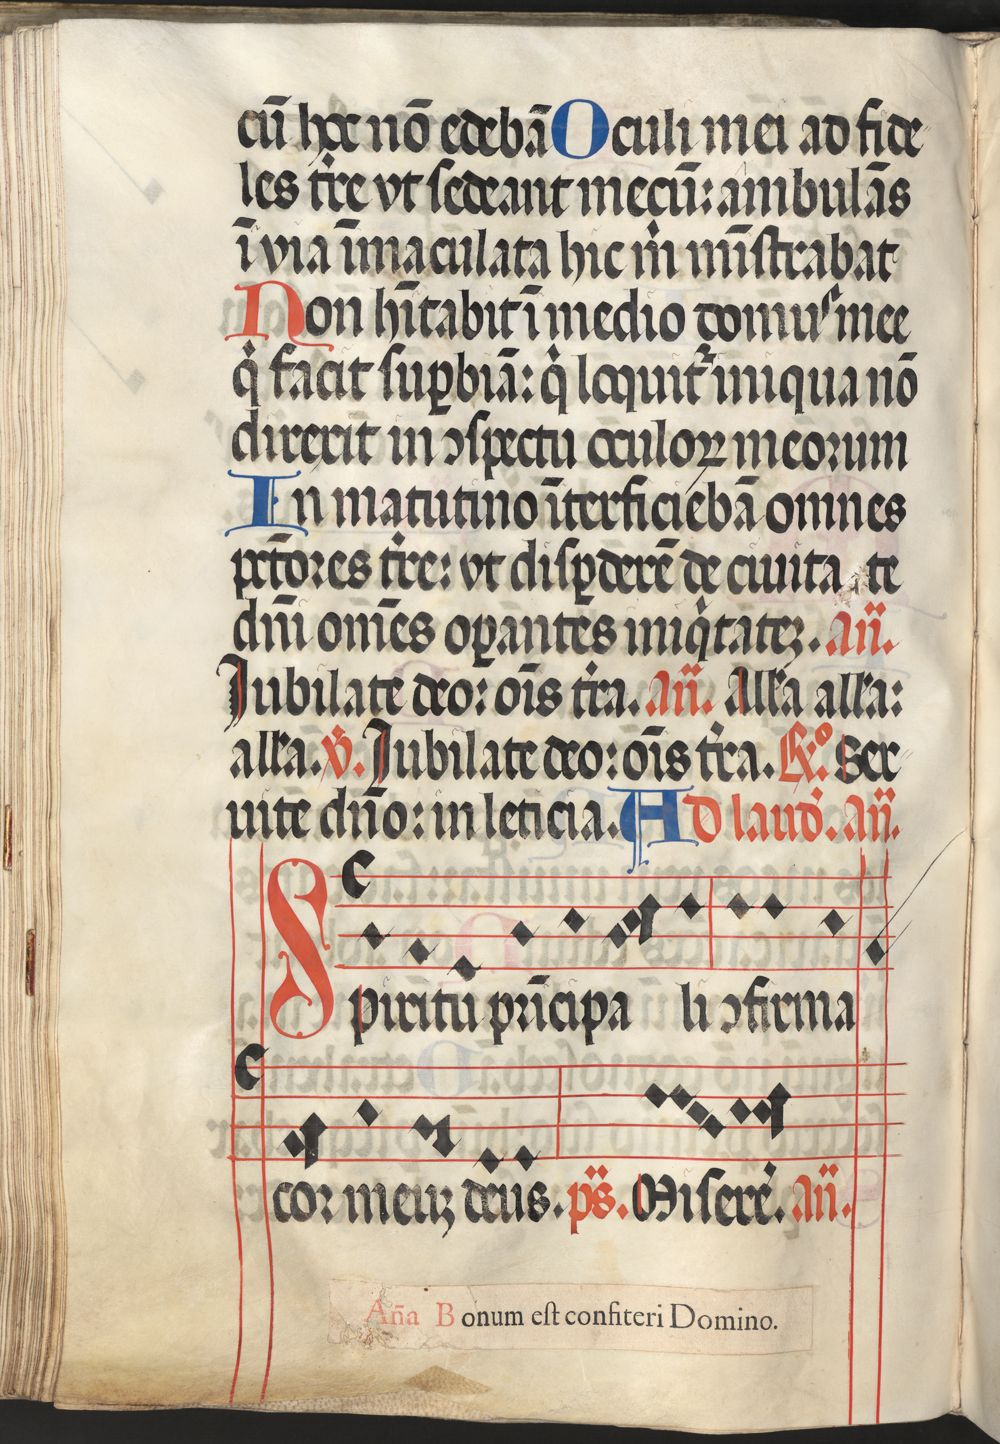 cū hoc nō edebā Oculi mei ad fide
les tr̄e vt sedeant mecū: ambulās
ī via īmaculata hic m̄ mīstrabat
Non hītabit ī medio domus mee
q̇ facit suꝑbiā: q̇ loquit᷑ iniqua nō
direxit in ɔspectu oculoꝝ meorum
In matutino īterficiebā omnes
pctōres tr̄e: vt disꝑderē de ciuita te
dn̄i om̄es oꝑantes iniqͥtatez. an̄.
Iubilate deo: oīs tr̄a. an̄. Alla alla:
alla. v̄. Iubilate deo: oīs tr̄a. ℟o. Ser
uite dn̄o: in leticia. Ad laud. an̄.
C
Spiritū prīcipa li ɔfirma
C
cor meuz deus. ps. Miserē. an̄.
Añа Bonum eſt confiteri Domino.